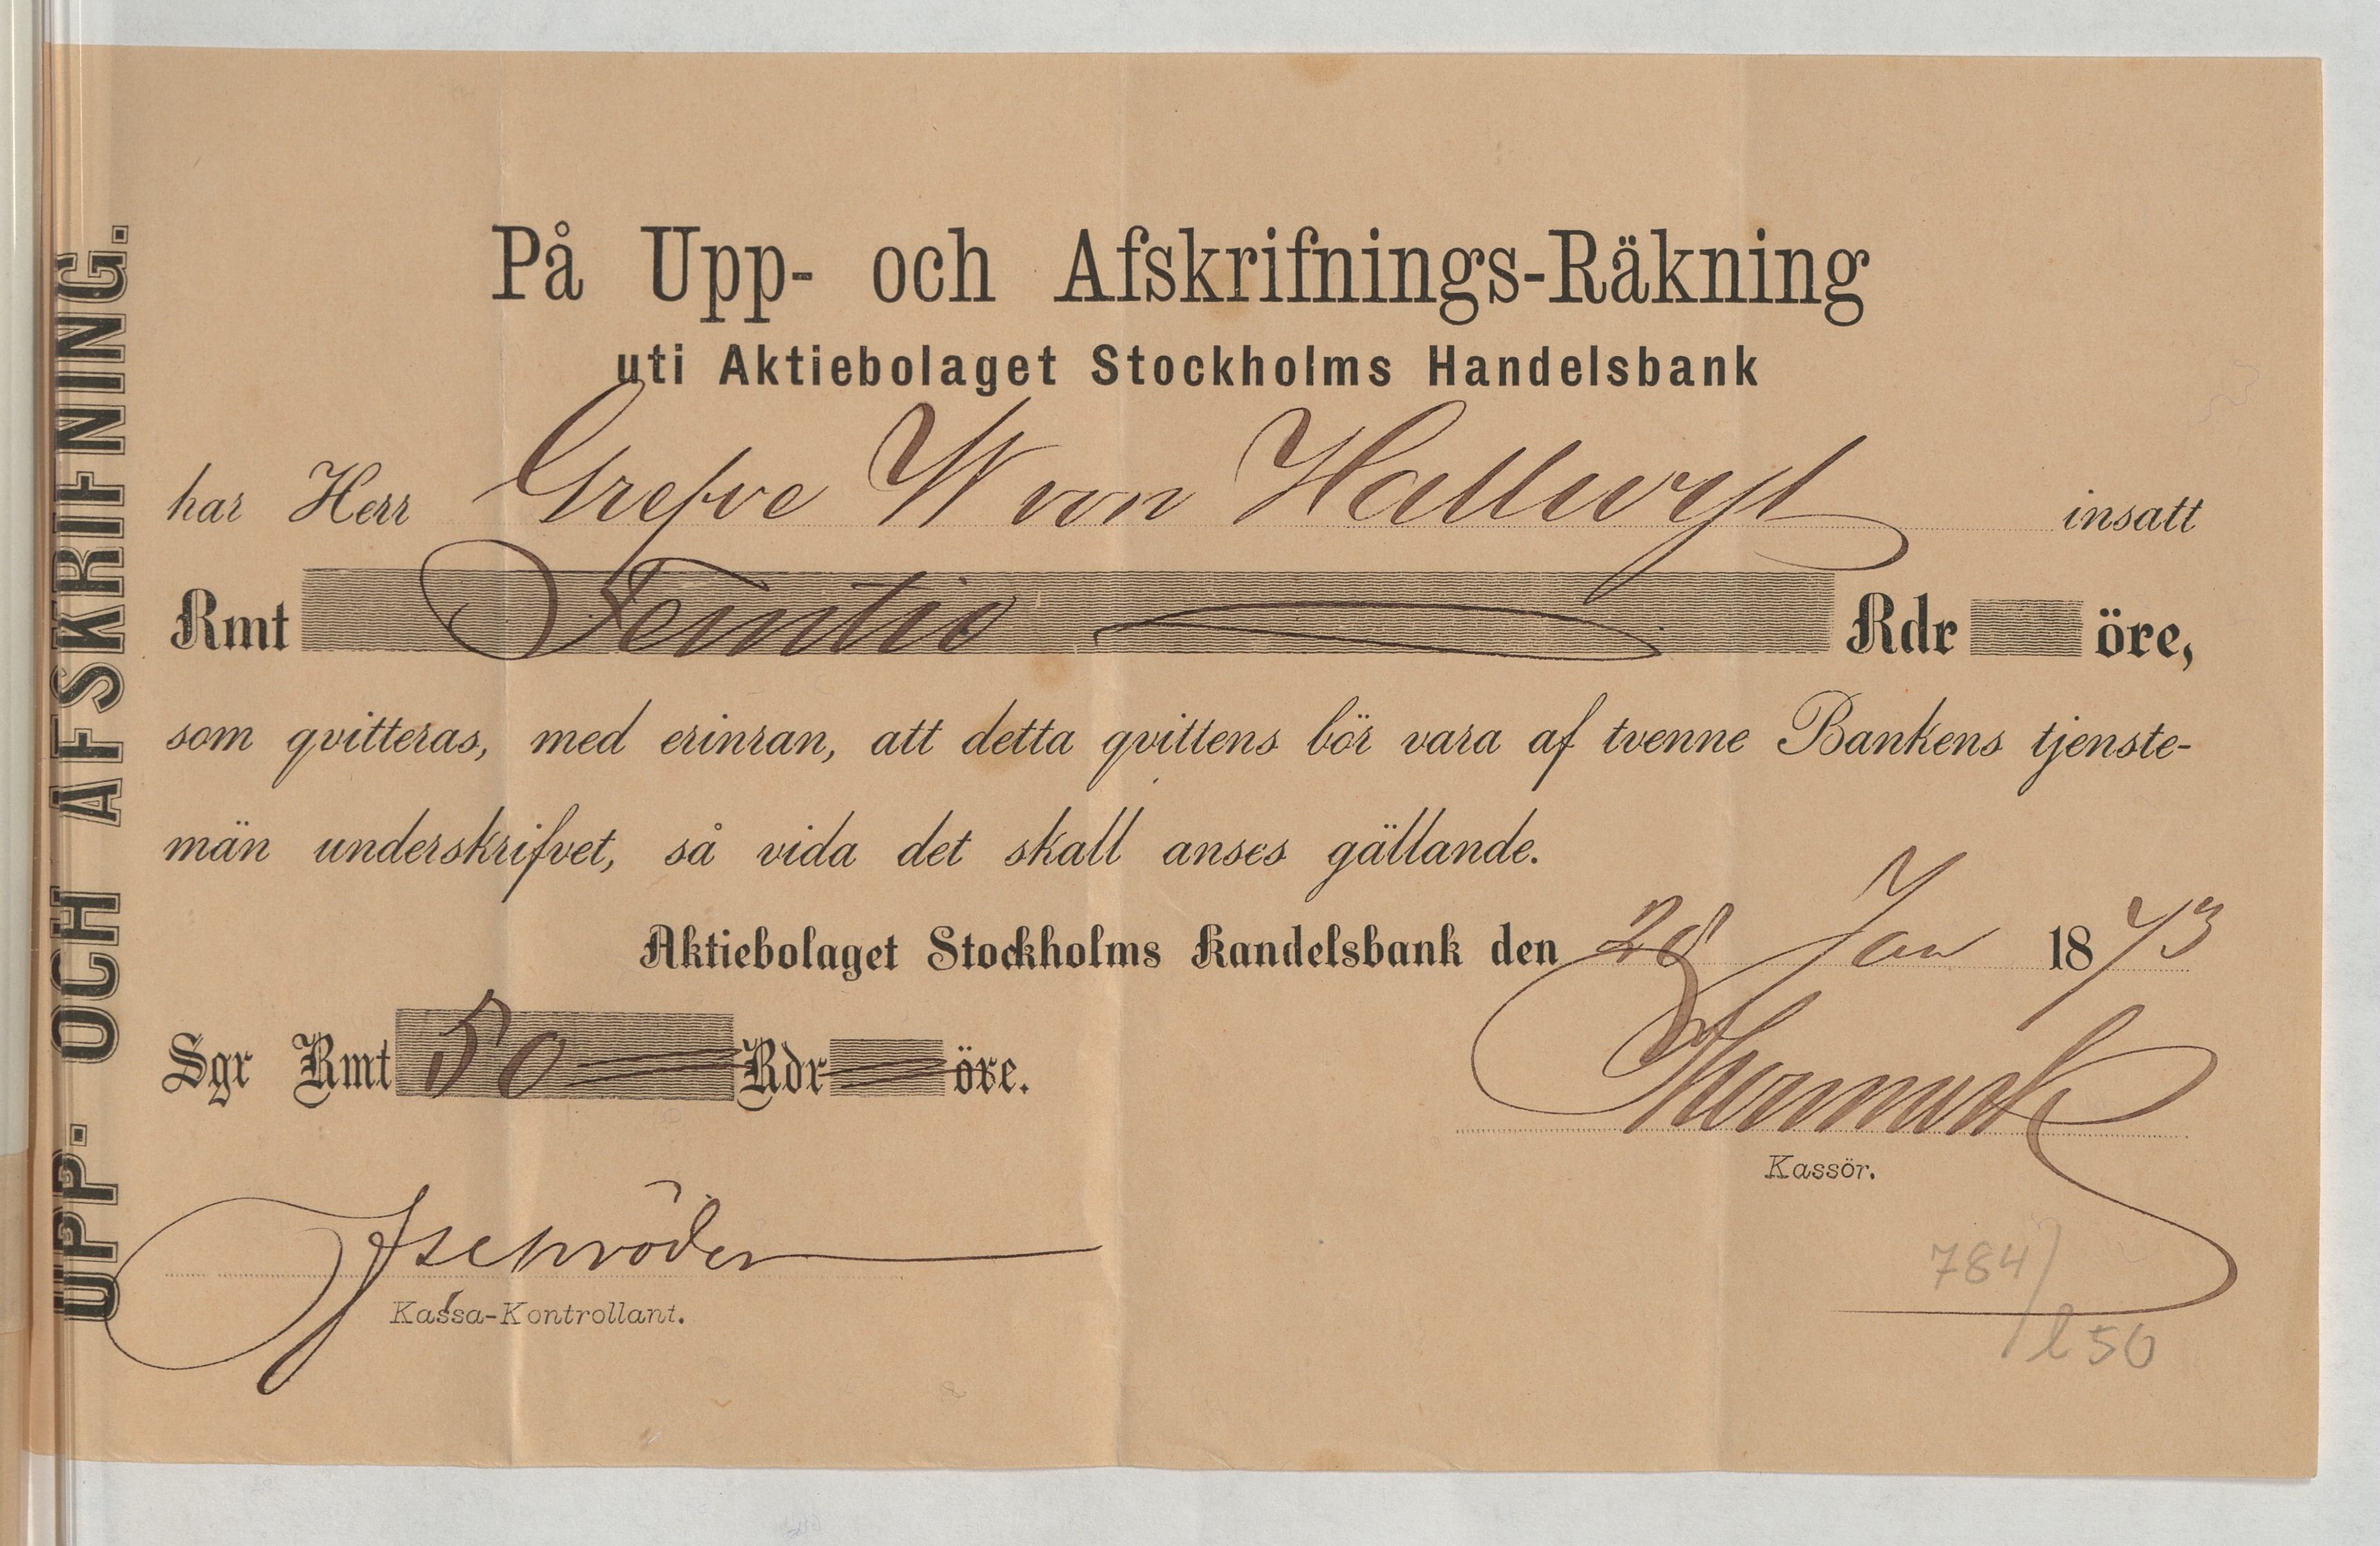 UPP- OCH AFSKRIFNING.
På Upp- och Afskrifnings-Räkning
uti Aktiebolaget Stockholms Handelsbank
har Herr Grefve W von Hallwyl insatt
Rmt Femtio Rdr öre,
som qvitteras, med erinran, att detta qvittens bör vara af tvenne Bankens tjenste-
män underskrifvet, så vida det skall anses gällande.
Aktiebolaget Stockholms Handelsbank den 28 Jan 1873
Sgr Rmt 50 Rdr öre.
Kassör.
Schröder
Kassa-Kontrollant.
784/
l 50